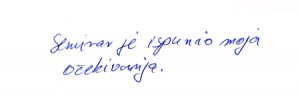 Seminar je ispunio moja
očekivanja.